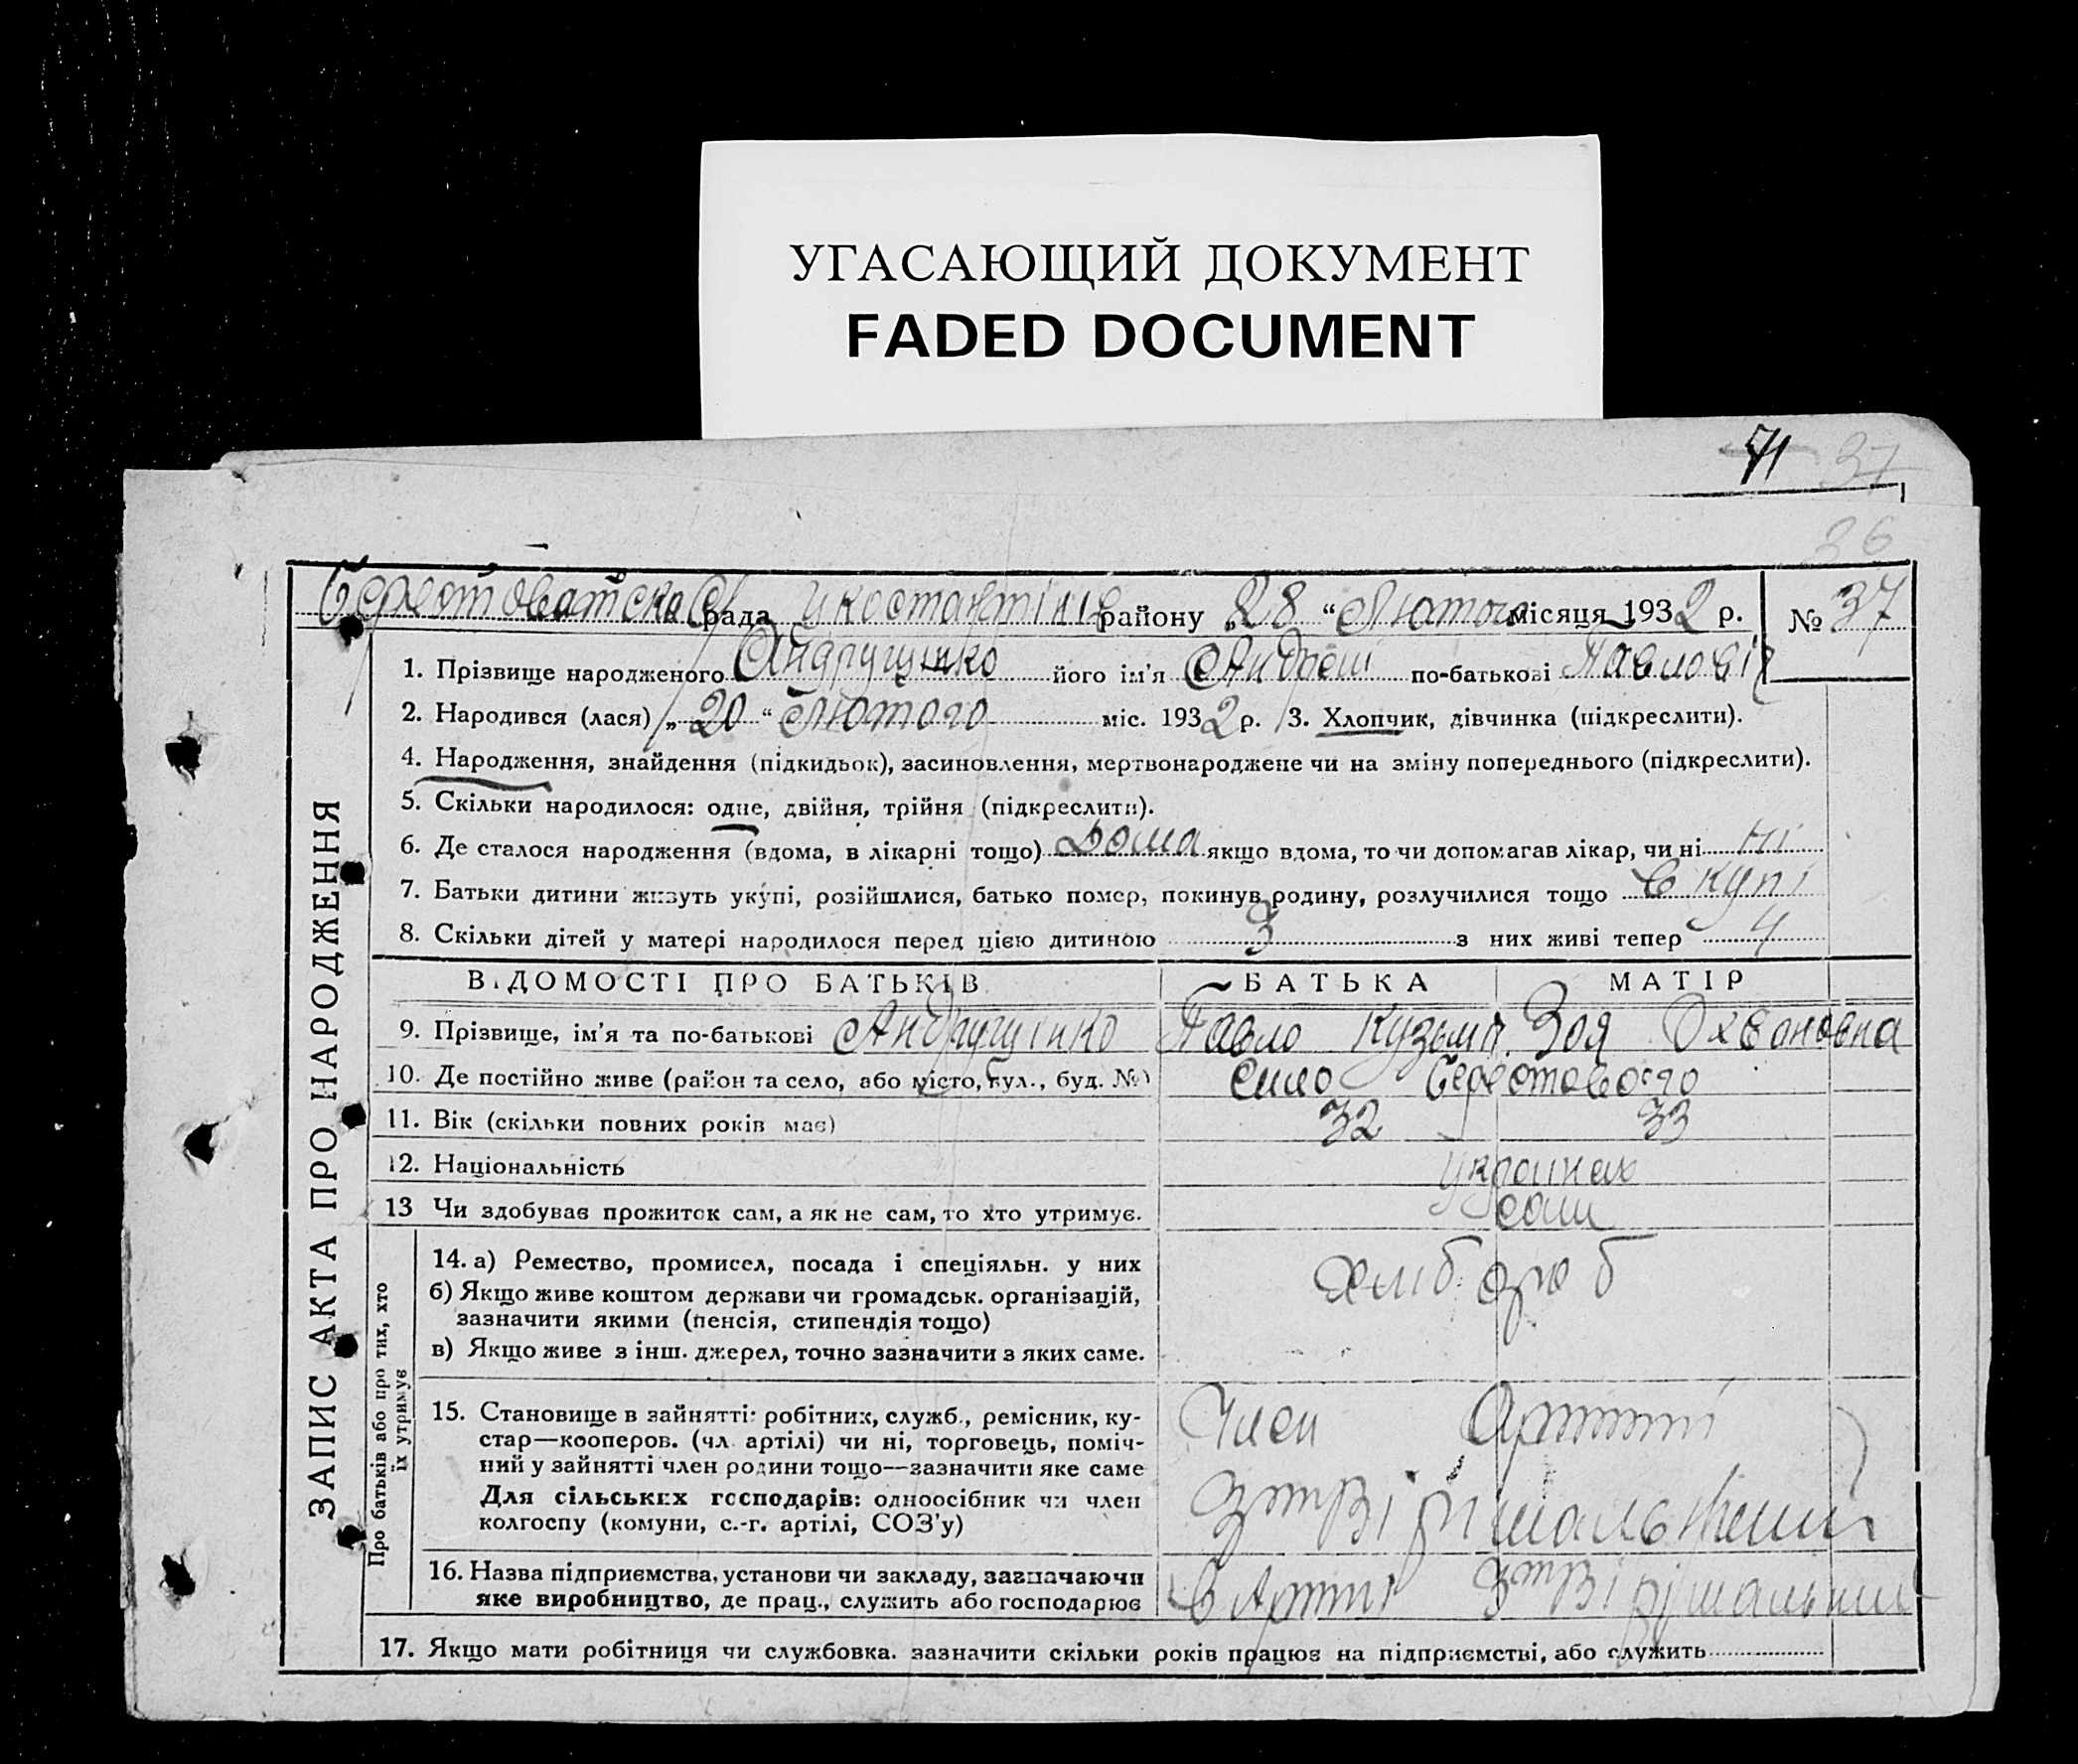 УГАСАЮЩИЙ ДОКУМЕНТ
FADED DOCUMENT
71 37
36
Берестоватська рада району „28“ Лютого місяця 1932 р. № 37
1. Прізвище народженого Андрущінко його ім'я Андрей по-батькові Павловіч
2. Народився (лася) „20“ Лютого міс. 1932 р. 3. Хлопчик, дівчинка (підкреслити).
4. Народження, знайдення (підкидьок), засиновлення, мертвонароджене чи на зміну попереднього (підкреслити).
5. Скільки народилося: одне, двійня, трійня (підкреслити).
6. Де сталося народження (вдома, в лікарні тощо) Дома якщо вдома, то чи допомагав лікар, чи ні ні
7. Батьки дитини живуть укупі, розійшлися, батько помер, покинув родину, розлучилися тощо в купі
8. Скільки дітей у матері народилося перед цією дитиною 3 з них живі тепер 4
ВІДОМОСТІ ПРО БАТЬКІВ БАТЬКА МАТІР
9. Прізвище, ім'я та по-батькові Андрущінко Павло Кузьм. Зоя
10. Де постійно живе (район та село, або місто, вул., буд. №) село
11. Вік (скільки повних років має) 32 33
12. Національність
13 Чи здобував прожиток сам, а як не сам, то хто утримує. сам
14. а) Ремество, промисел, посада і спеціяльн. у них хліб ороб
б) Якщо живе коштом держави чи громадськ. організацій,
зазначити якими (пенсія, стипендія тощо)
в) Якщо живе з інш. джерел, точно зазначити з яких саме.
15. Становище в зайнятті: робітник, служб., ремісник, ку-
стар—кооперов. (чл. артілі) чи ні, торговець, поміч-
ний у зайнятті член родини тощо—зазначити яке саме
Для сільських господарів: одноосібник чи член
колгоспу (комуни, с.-г. артілі, СОЗ'у)
Член Артілі
16. Назва підприємства, установи чи закладу, зазначаючи
яке виробництво, де прац., служить або господарює
в Артілі
17. Якщо мати робітниця чи службовка. зазначити скільки років працює на підприємстві, або служить
ЗАПИС АКТА ПРО НАРОДЖЕННЯ
Про батьків або про тих, хто
їх утримує